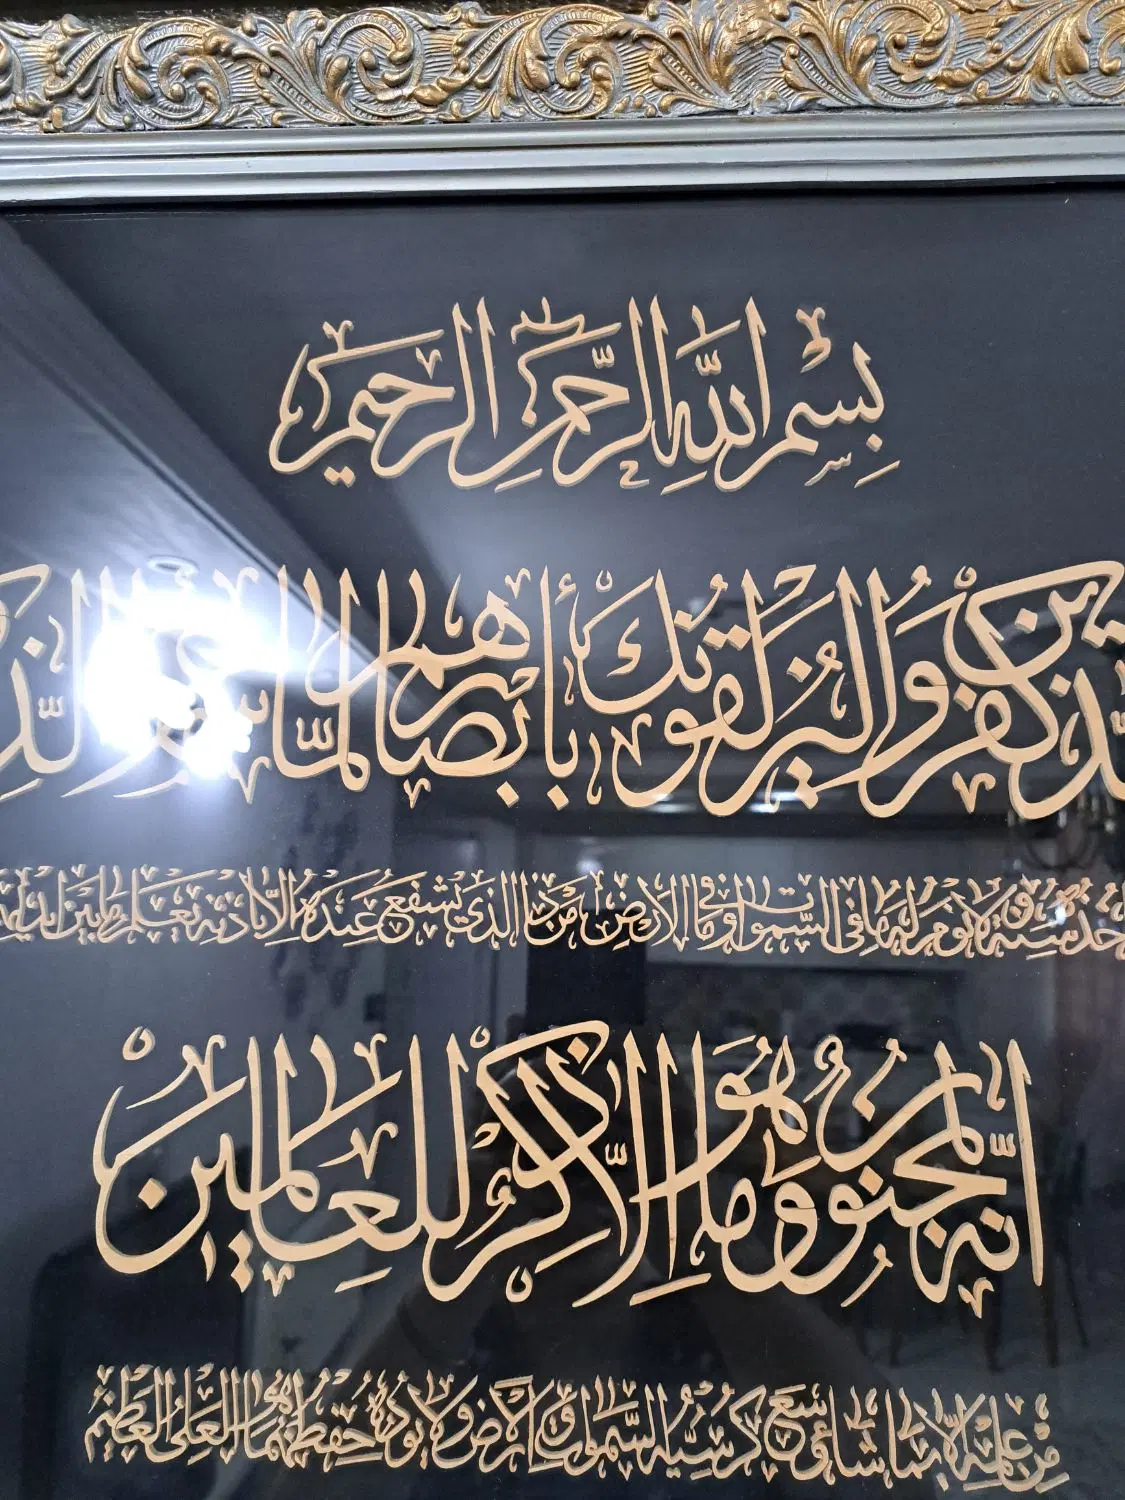 بِسْمِ اللَّهِ الرَّحْمٰنِ الرَّحِيمِ
الَّذِينَ كَفَرُوا لَيُزْلِقُونَكَ بِأَبْصَارِهِمْ لَمَّا
سِنَةٌ وَلَا نَوْمٌ لَهُ مَا فِي السَّمٰوَاتِ وَمَا فِي الْأَرْضِ مَنْ ذَا الَّذِي يَشْفَعُ عِنْدَهُ إِلَّا بِإِذْنِهِ يَعْلَمُ مَا بَيْنَ
إِنَّهُ لَمَجْنُونٌ وَمَا هُوَ إِلَّا ذِكْرٌ لِلْعَالَمِينَ
مِنْ عِلْمِهِ إِلَّا بِمَا شَاءَ وَسِعَ كُرْسِيُّهُ السَّمٰوَاتِ وَالْأَرْضَ وَلَا يَئُودُهُ حِفْظُهُمَا وَهُوَ الْعَلِيُّ الْعَظِيمُ